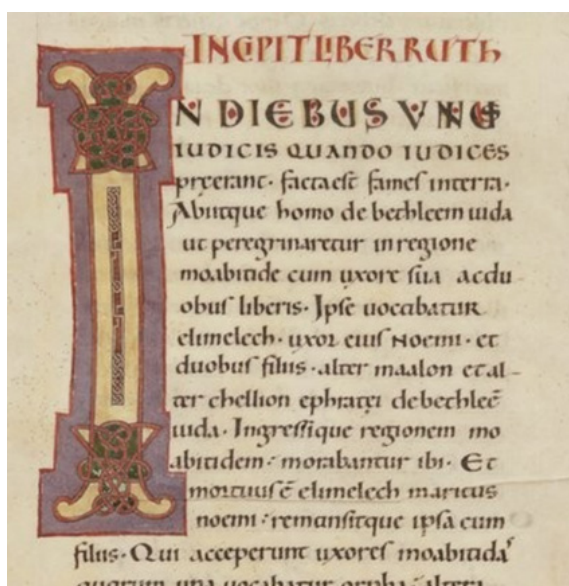 INCIPIT LIBER RUTH
IN DIEBUS UNIUS
IUDICIS QUANDO IUDICES
preerant· facta est fames in terra·
Abiitque homo de bethleem iuda
ut peregrinaretur in regione
moabitide cum uxore sua ac du
obus liberis· Ipse uocabatur
elimelech· uxor eius Noemi· et
duobus filiis· alter maalon et al-
ter chellion ephratei de bethleē
iuda· Ingressique regionem mo
abitidem· morabantur ibi· Et
mortuus ē elimelech maritus
noemi· remansitque ipsa cum
filiis· Qui acceperunt uxores moabitidas
quarum una uocabatur orpha· altera